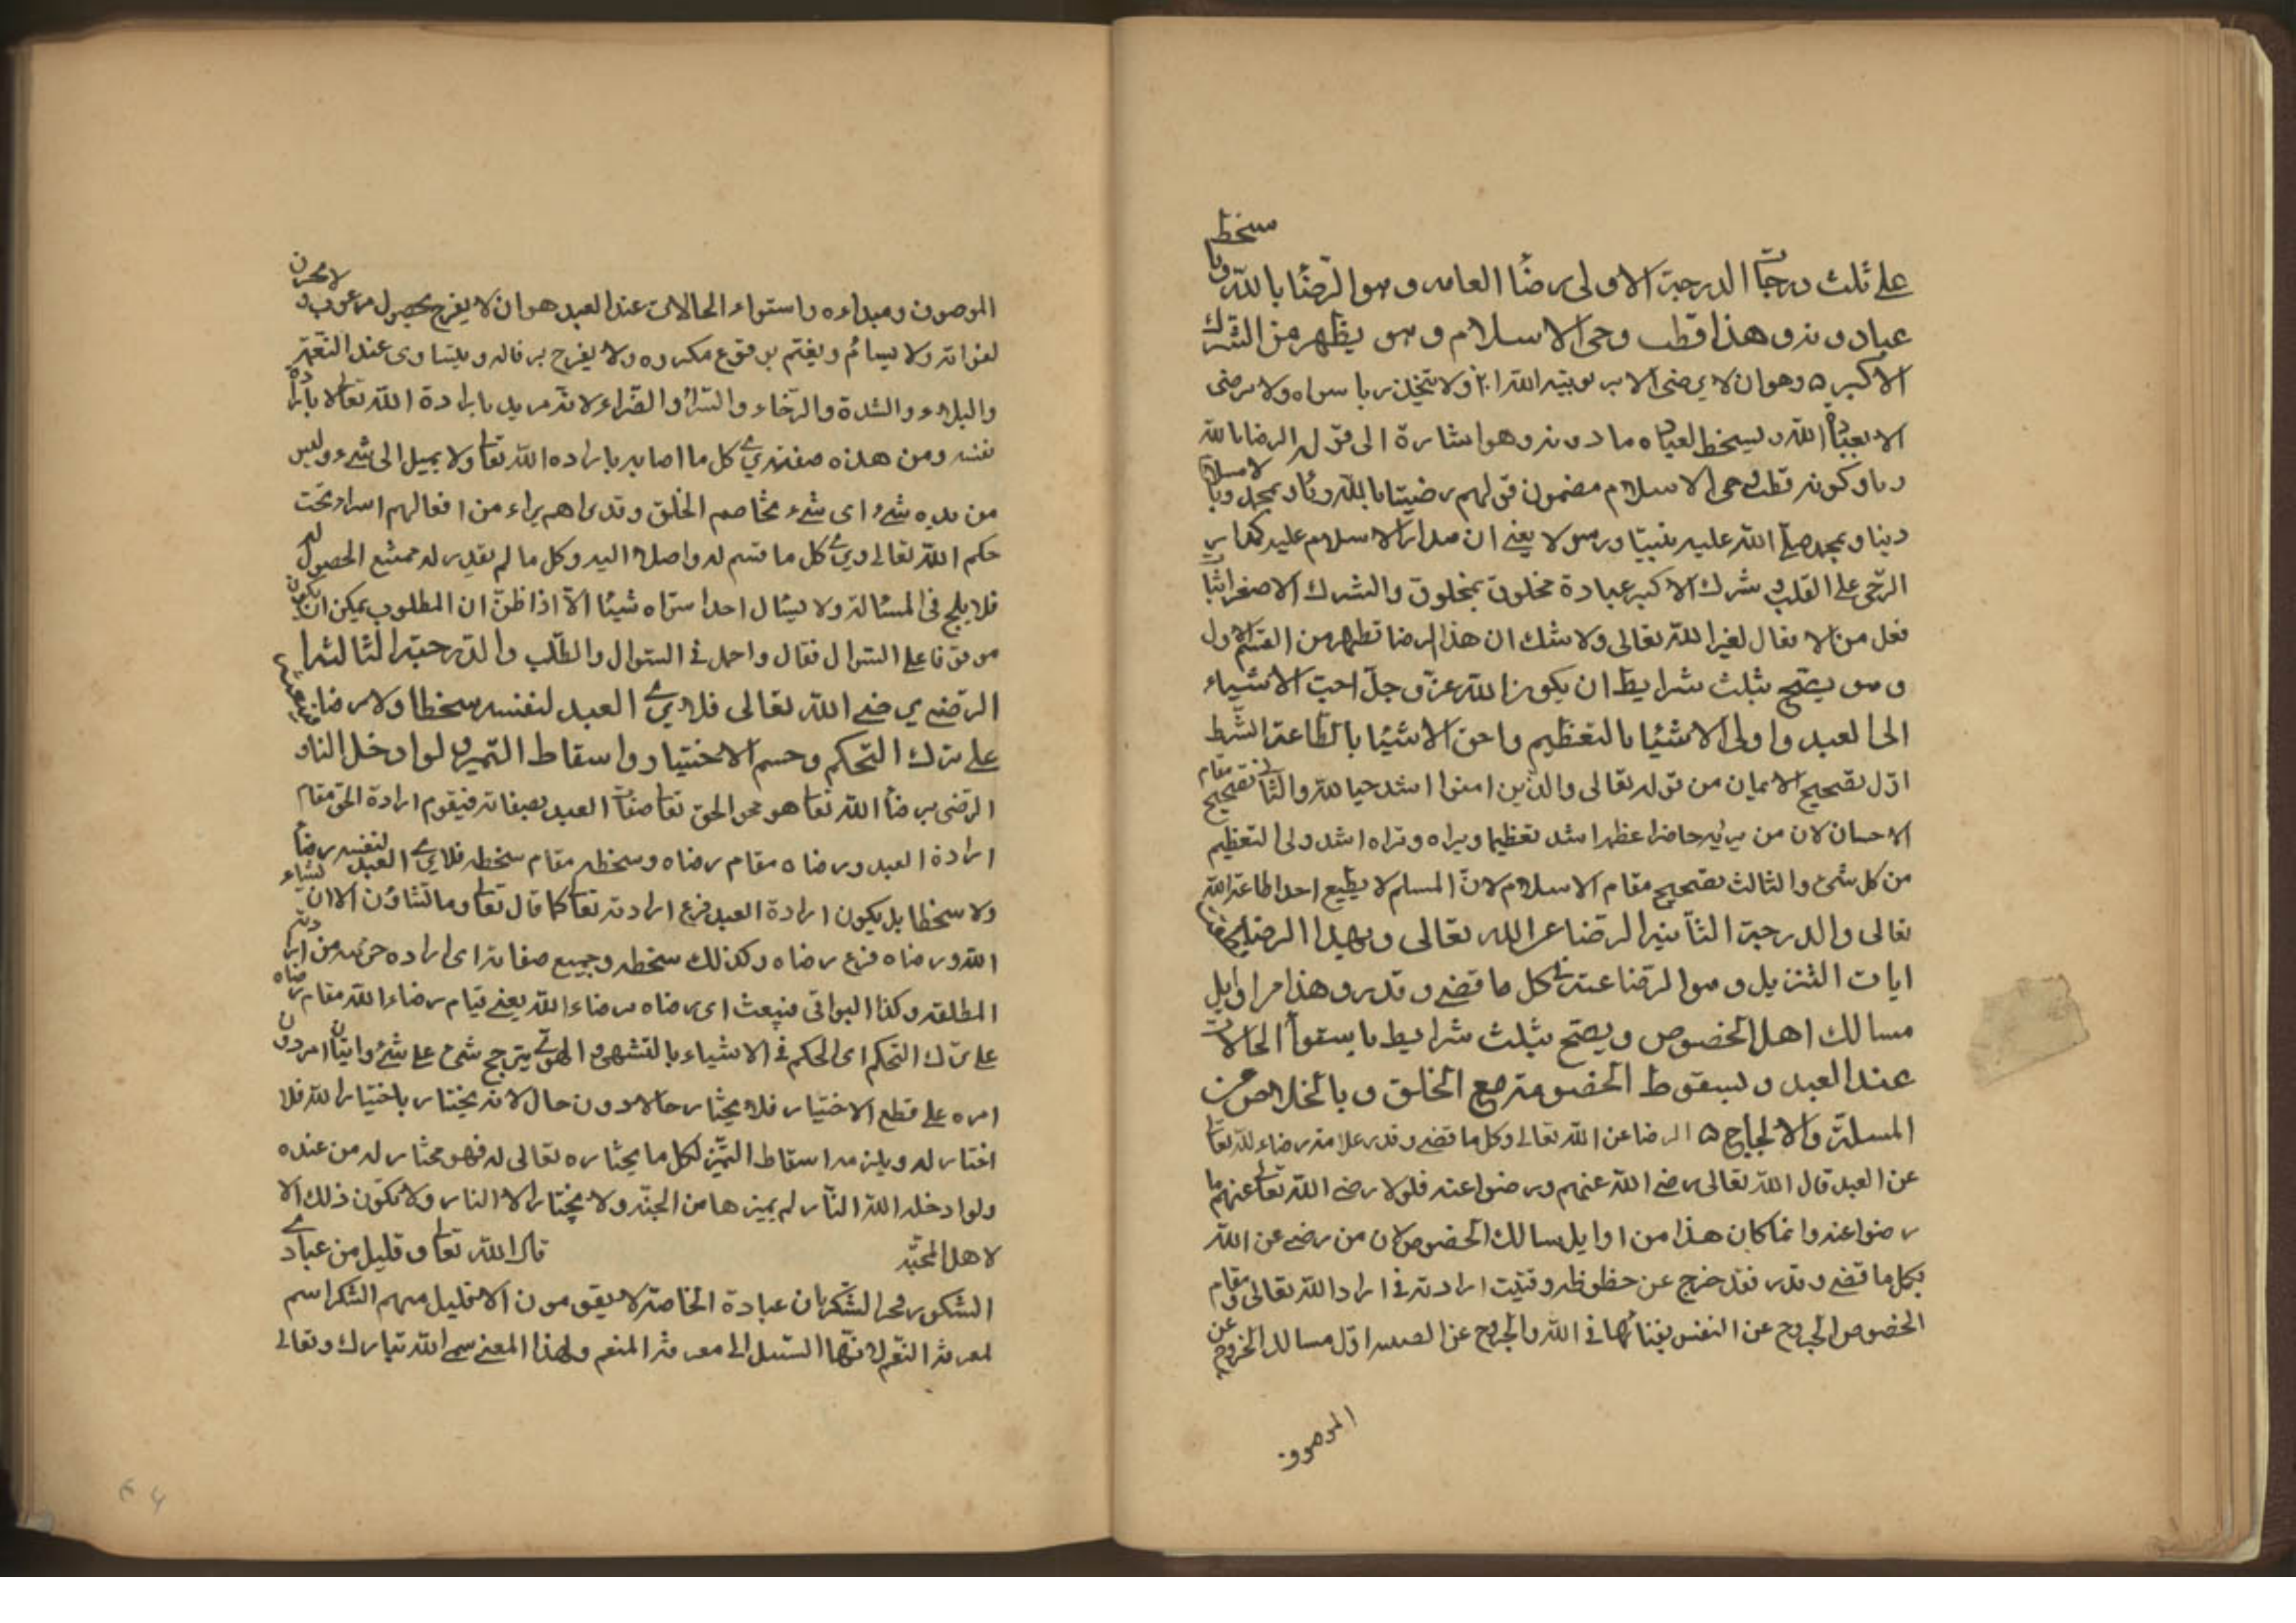 على ثلث درجات الدرجة الاولى رضا العامة وهو الرضا بالله ربا وسخط
عبادة دونه وهذا قطب رحى الاسلام وهو يظهر من الشرك
الاكبر ۵ وهو ان لا يرضى الا بربوبية الله ولا يتخذ ربا سواه ولا يرضى
الا بعبادة الله ويسخط لعبادة ما دونه وهو اشارة الى قوله الرضا بالله
ربا وكونه قطب رحى الاسلام مضمون قولهم رضيتا بالله ربا وبالاسلام
دينا وبمحمد صلى الله عليه نبيا ورسولا يعنى ان مدار الاسلام عليه كمدار
الرحى على القلب وشرك الاكبر عبادة مخلوق بمخلوق والشرك الاصغر اثبات
فعل من الافعال لغير الله تعالى ولا شك ان هذا الرضا تطهر من القسم الاول
وهو يصح بثلث شرايط ان يكون الله عز وجل احب الاشياء
الى العبد واولى الاشيا بالتعظيم واحق الاشيا بالطاعة الشرط
اول تصحيح الايمان من قوله تعالى والذين امنوا اشد حبا لله والثانى تصحيح مقام
الاحسان لان من يريه حاضرا عظهرا شد تعظيما ويراه وتراه اشد ولى التعظيم
من كل شئ والثالث تصحيح مقام الاسلام لان المسلم لا يطيع احدا طاعة الله
تعالى والدرجة الثانية الرضا عن الله تعالى وبهذا الرضا نطق
ايات التنزيل وهو الرضا عنه فى كل ما قضى وقدر وهذا من اوايل
مسالك اهل الخصوص ويصح بثلث شرايط باستواء الحالات
عند العبد وبسقوط الخصومة مع الخلق وبالخلاص من
المسلة والالحاح ۵ الرضا عن الله تعالى وكل ما قضى وقدر علامة رضاء لله تعالى
عن العبد قال الله تعالى رضى الله عنهم ورضوا عنه فلولا رضى الله تعالى عنهم ما
رضوا عنه وانما كان هذا من اوايل مسالك الخصوص لان من رضى عن الله
بكل ما قضى وقدر فقد خرج عن حظوظه وفنيت ارادته فى اراد الله تعالى ومقام
الخصوص الخروج عن النفس بفنائها فى الله والخروج عن اول مسالك الخروج عن
الموصوف
الموصوف ومبداءه واستواء الحالات عند العبد هو ان لا يفرح بحصول مرغوب ولا يحزن
لفواته ولا يسام ويغتم بوقوع مكروه ولا يفرح بزواله ويتساوى عند النعمة
والبلاء والشدة والرخاء والسراء والضراء لانه مريد بارادة الله تعالى لا بارادة
نفسه ومن هذه صفته يرى كل ما اصابه باراده الله تعالى ولا يميل الى شىء وليس
من يده شىء واى شىء يخاصم الخلق وقد يراهم براء من افعالهم اسراء تحت
حكم الله تعالى ويرى كل ما قسم له واصل اليه وكل ما لم يقدر له ممتنع الحصول له
فلا يلح فى المسالة ولا يسال احدا سواه شيئا الا اذا ظن ان المطلوب يمكن ان يكون
موقوفا على السوال فقال واجمل فى السوال والطلب والدرجة الثالثة
الرضى برضى الله تعالى فلا يرى العبد لنفسه سخطا ولا رضا فيبعثه
على ترك التحكم وحسم الاختيار واسقاط التميز ولو ادخل النار
الرضى برضا الله تعالى هو محو الحق تعالى صفات العبد بصفاته فيقوم ارادة الحق مقام
ارادة العبد ورضاه مقام رضاه وسخطه مقام سخطه فلا يرى العبد لنفسه رضا
ولا سخطا بل يكون ارادة العبد فرع ارادته تعالى كما قال تعالى وما تشاؤن الا ان يشاء
الله ورضاه فرع رضاه وكذلك سخطه وجميع صفاته اى اراده جزئيه من ارادته
المطلقة وكذا البواقى فيبعث اى رضاه برضاء الله يعنى قيام رضاء الله مقام رضاه
على ترك التحكم اى الحكم فى الاشياء بالتشهى والهوى يترجح شئ على شئ واتيان امر دون
امره على قطع الاختيار فلا يختار حالا دون حال لانه يختار باختيار الله فلا
اختار له ويلزمه اسقاط التميز لكل ما يختاره تعالى له فهو مختار له من عنده
ولو ادخله الله النار لم يميزها من الجنة ولا يختار الا النار ولا يكون ذلك الا
لاهل المحبة قال الله تعالى وقليل من عبادى
الشكور فخر الشكر بان عبادة الخاصة لا يقومون الا قليل منهم الشكر اسم
لمعرفة النعم لانها السبيل الى معرفة المنعم ولهذا المعنى سمى الله تبارك وتعالى